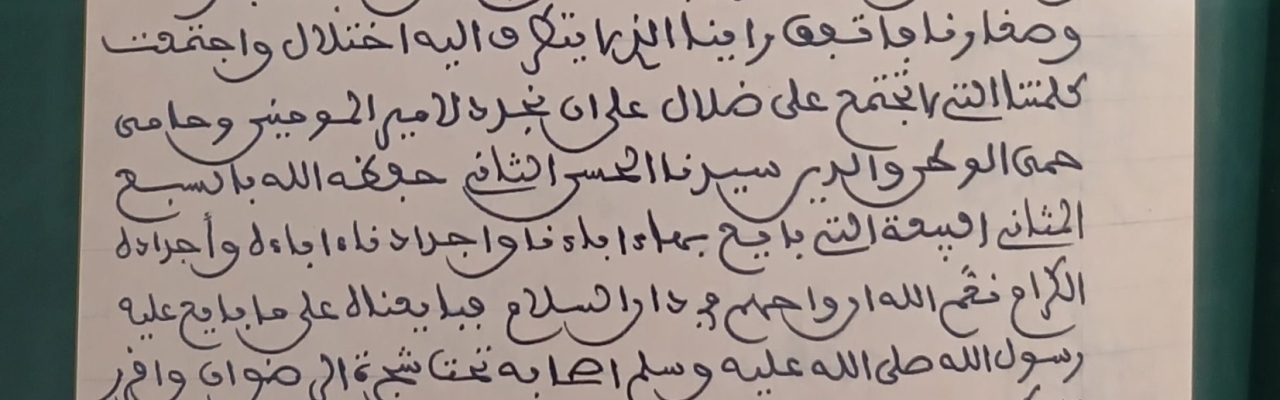 وصغارنا فاتفق راينا الذي لا يتطرق اليه اختلال واجتمعت
كلمتنا التي لا تجتمع على ضلال على ان نجدد لامير المومنين وحامي
حمى الوطن والدين سيدنا الحسن الثاني حفظه الله بالسبع
المثاني البيعة التي بايع بها ءاباءنا واجدادنا ءاباءه وأجداده
الكرام نعَّم الله ارواحهم في دار السلام فبايعناه على ما بايع عليه
رسول الله صلى الله عليه وسلم اصحابه تحت شجرة الرضوان واقر